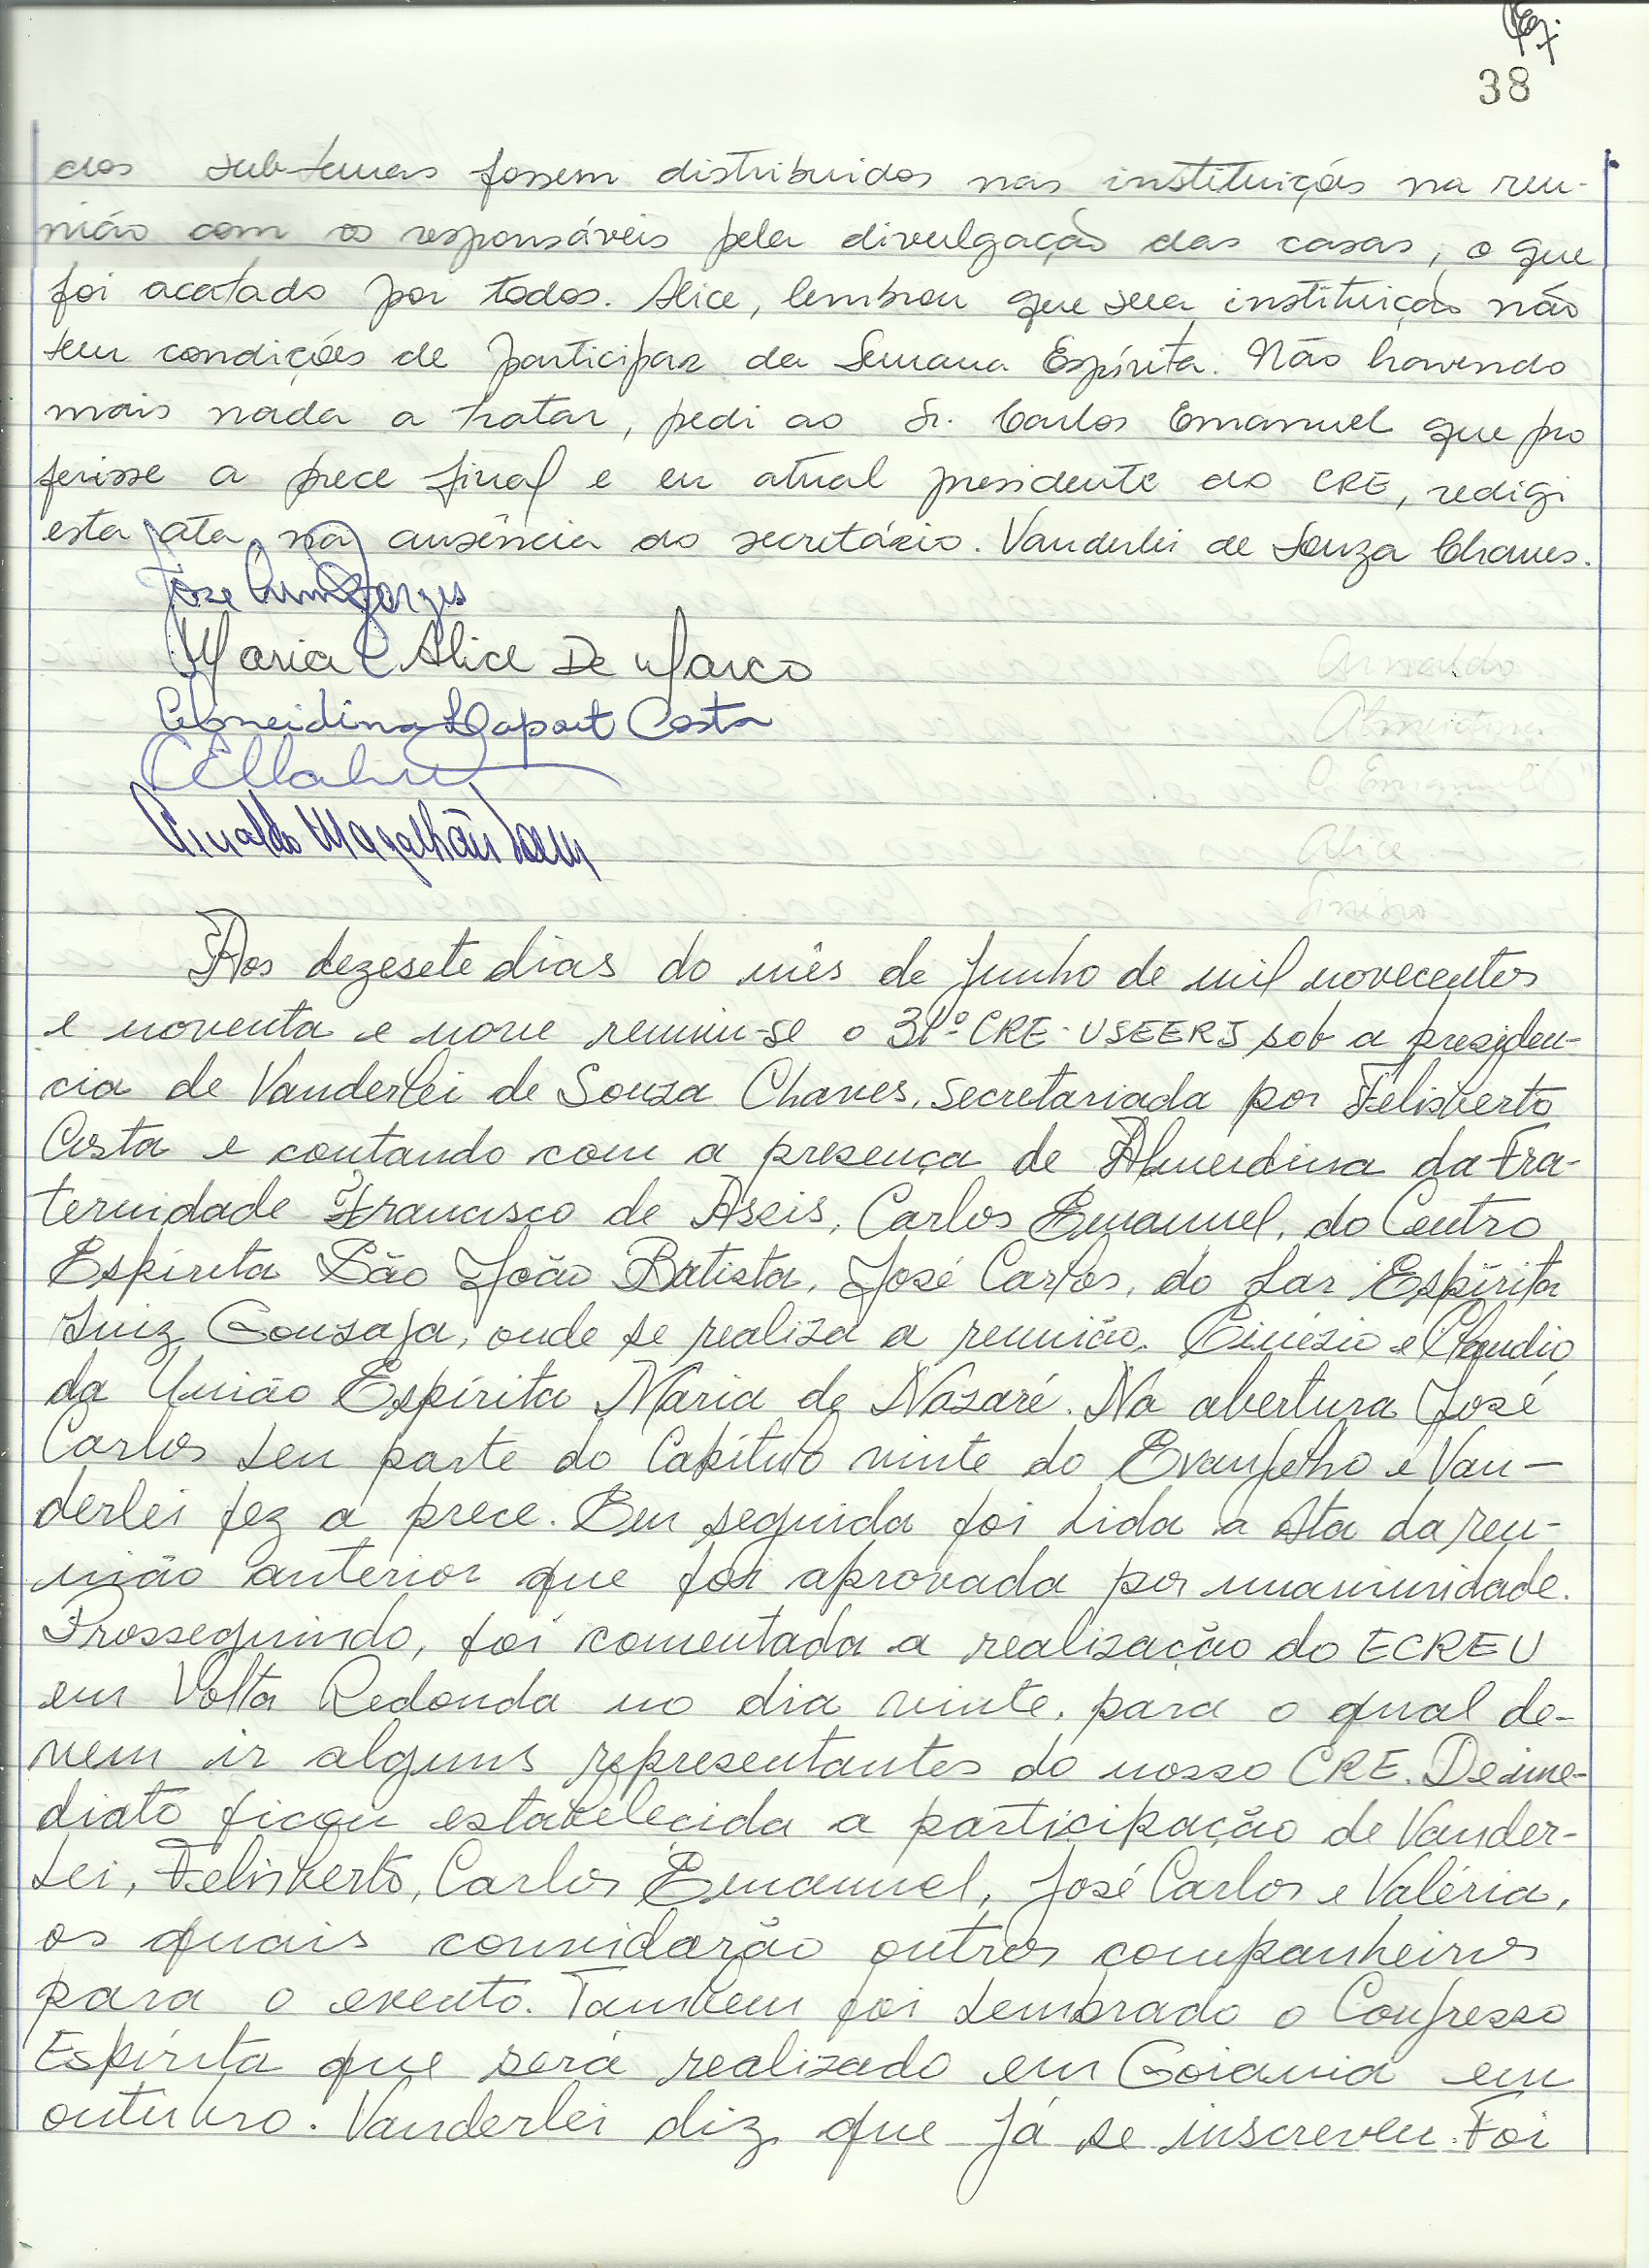 38
dos sub-temas fossem distribuidos nas instituições na reu-
nião com os responsáveis pela divulgação das casas, o que
foi acatado por todos. Alice, lembrou que sua instituição não
tem condições de participar da Semana Espírita. Não havendo
mais nada a tratar, pedi ao Sr. Carlos Emanuel que pro
ferisse a prece final e eu atual presidente do CRE, redigi
esta ata na ausência do secretário. Vanderlei de Souza Chaves.
José
Maria Alice De Marco
Almeidina Costa
Arnaldo Magalhães
Arnaldo
Alice
Aos dezesete dias do mês de Junho de mil novecentos
e noventa e nove reuniu-se o 31º CRE-USEERJ sob a presiden-
cia de Vanderlei de Souza Chaves, secretariada por Felisberto
Costa e contando com a presença de Almerdina da Fra-
ternidade Francisco de Assis, Carlos Emanuel, do Centro
Espírita São João Batista, José Carlos, do Lar Espírita
Luiz Gonzaga, onde se realiza a reunião. Cinézio e Claudio
da União Espírita Maria de Nazaré. Na abertura José
Carlos leu parte do Capítulo vinte do Evangelho e Van-
derlei fez a prece. Em seguida foi lida a Ata da reu-
nião anterior que foi aprovada por unanimidade.
Prosseguindo, foi comentada a realização do ECREU
em Volta Redonda no dia vinte, para o qual de-
vem ir alguns representantes do nosso CRE. De ime-
diato ficou estabelecida a participação de Vander-
lei, Felisberto, Carlos Emanuel, José Carlos e Valéria,
os quais convidarão outros companheiros
para o evento. Tambem foi lembrado o Congresso
Espírita que será realizado em Goiania em
outubro. Vanderlei diz que já se inscreveu. Foi